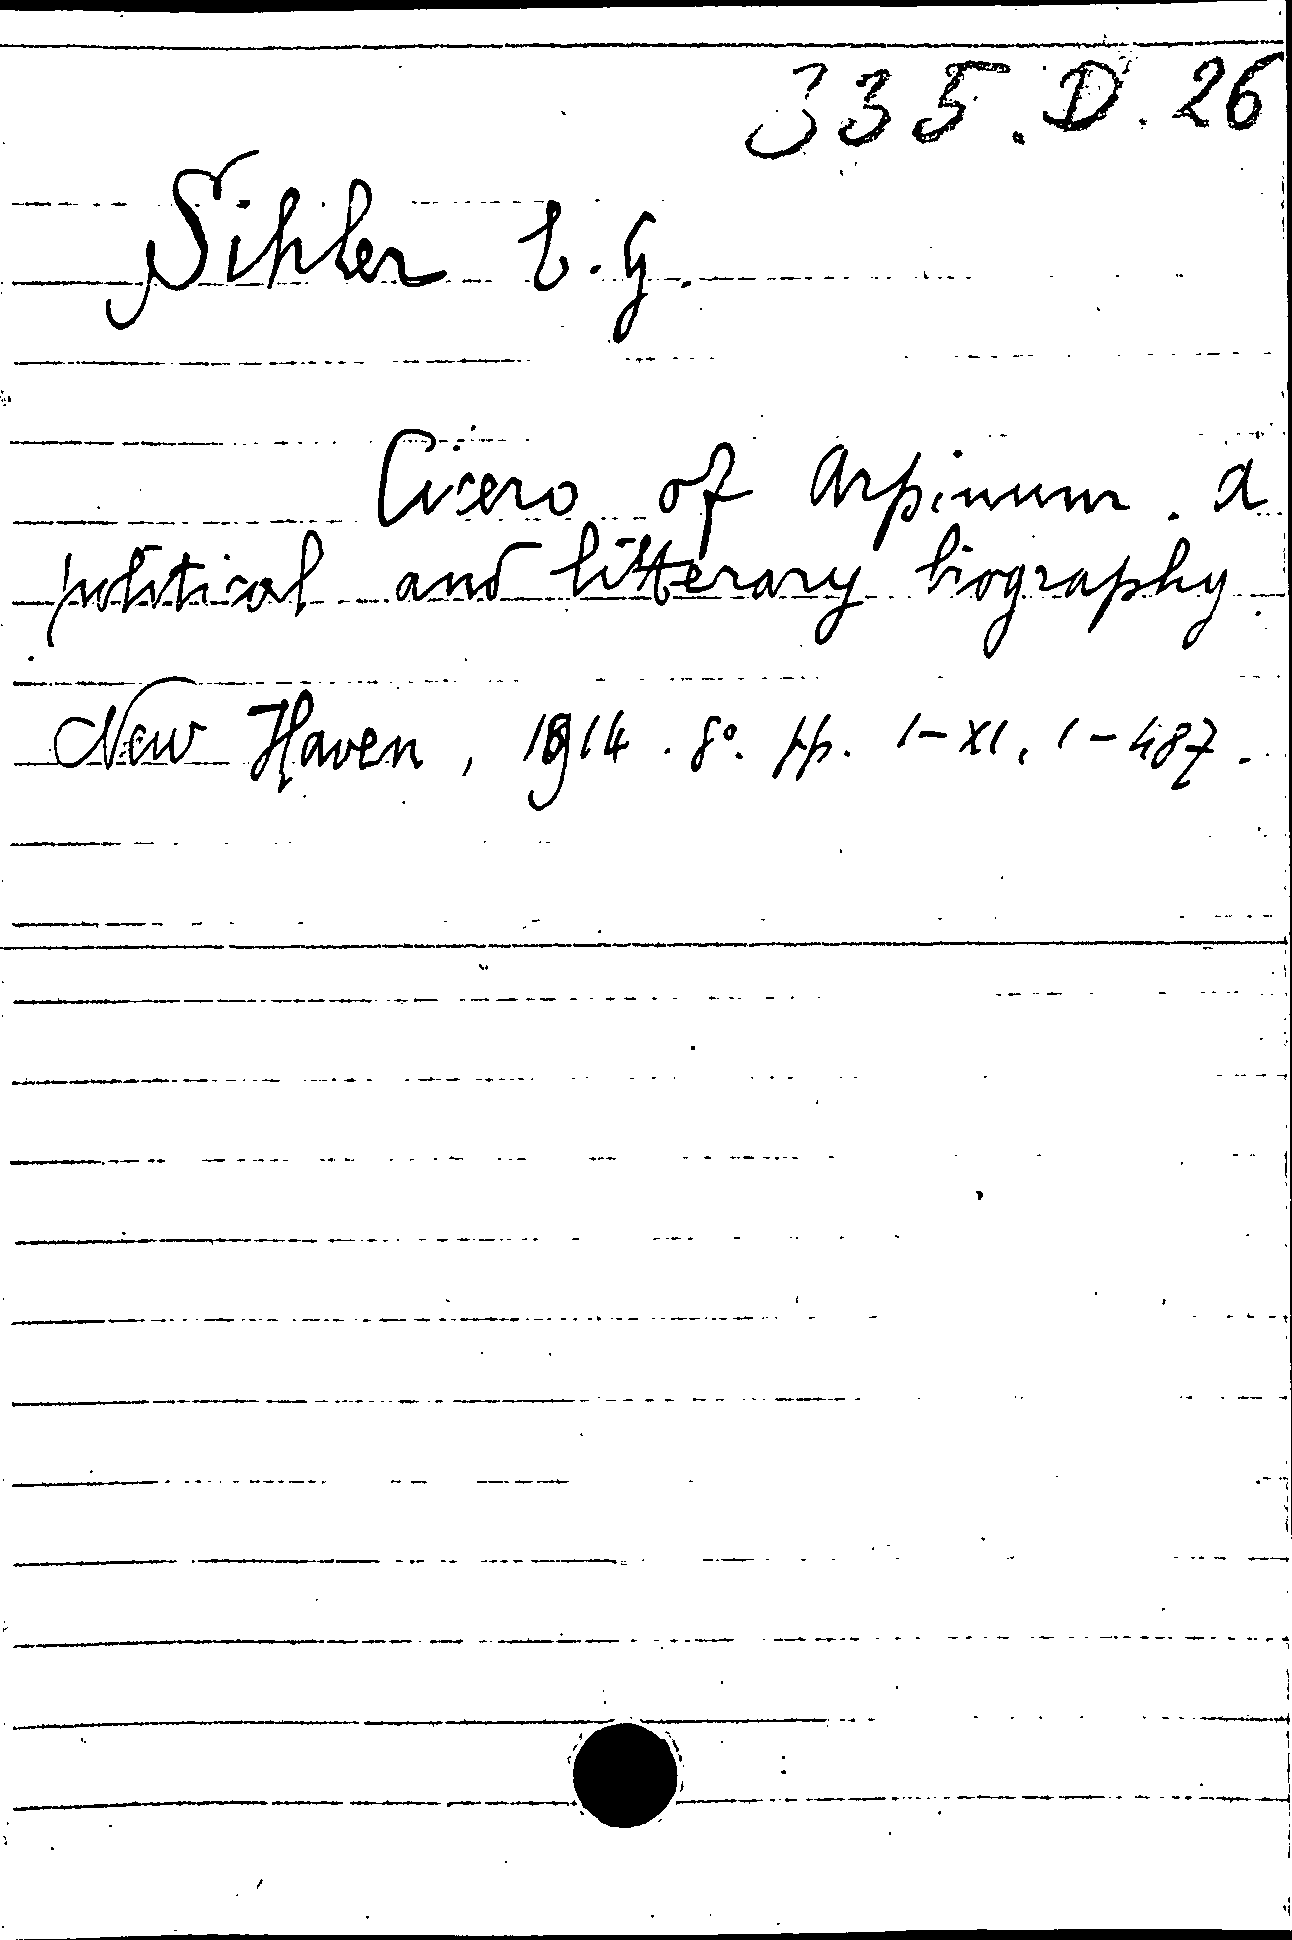 335.D.26
Sihler E. G.
Cicero of Arpinum. A
political and litterary biography.
New Haven, 1914. 8º. pp. I-XI, 1-487.